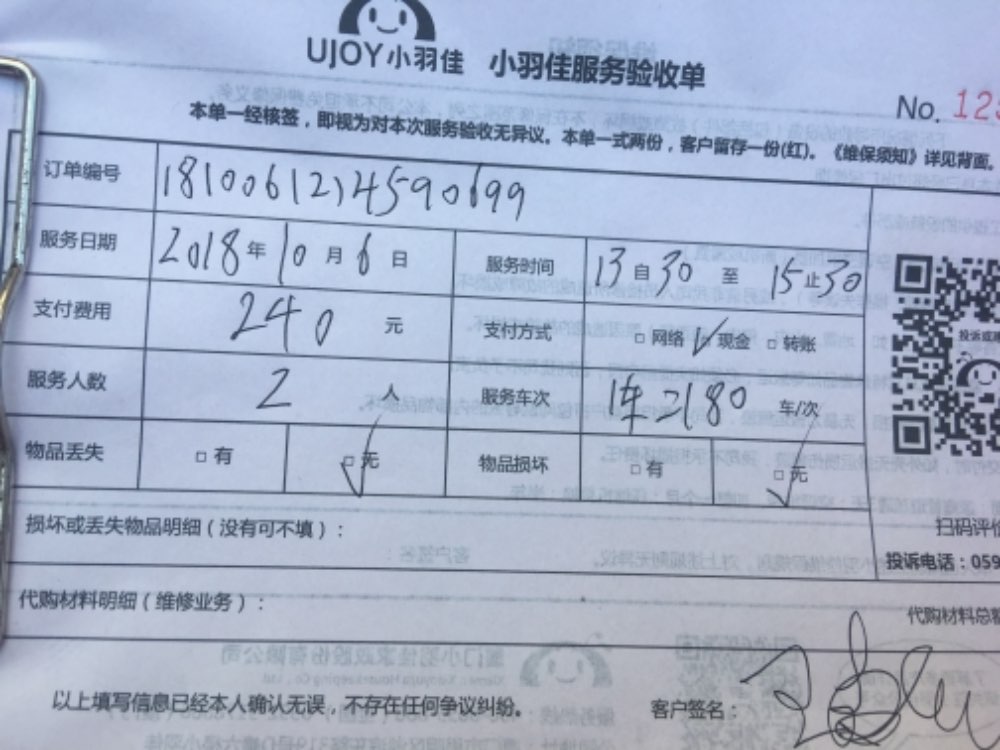 UJOY小羽佳 小羽佳服务验收单
No. 123
本单一经核签，即视为对本次服务验收无异议。本单一式两份，客户留存一份(红)。《维保须知》详见背面。
订单编号 1810061214590699
服务日期 2018年10月6日 服务时间 13自30至15止30
支付费用 240元 支付方式 □网络 ☑现金 □转账
服务人数 2人 服务车次 车/次
物品丢失 □有 ☑无 物品损坏 □有 ☑无
损坏或丢失物品明细（没有可不填）：
扫码评价
投诉电话：059
代购材料明细（维修业务）：
代购材料总额
以上填写信息已经本人确认无误，不存在任何争议纠纷。 客户签名：